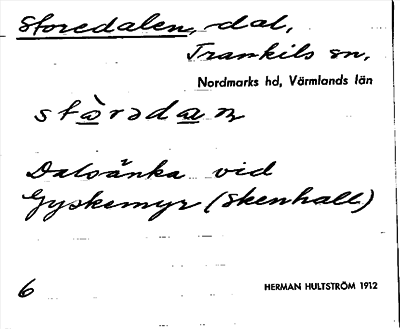 Storedalen, dal,
Trankils sn,
Nordmarks hd, Värmlands län
Dalsänka vid
Gyskemyr (Skenhall)
6 HERMAN HULTSTRÖM 1912